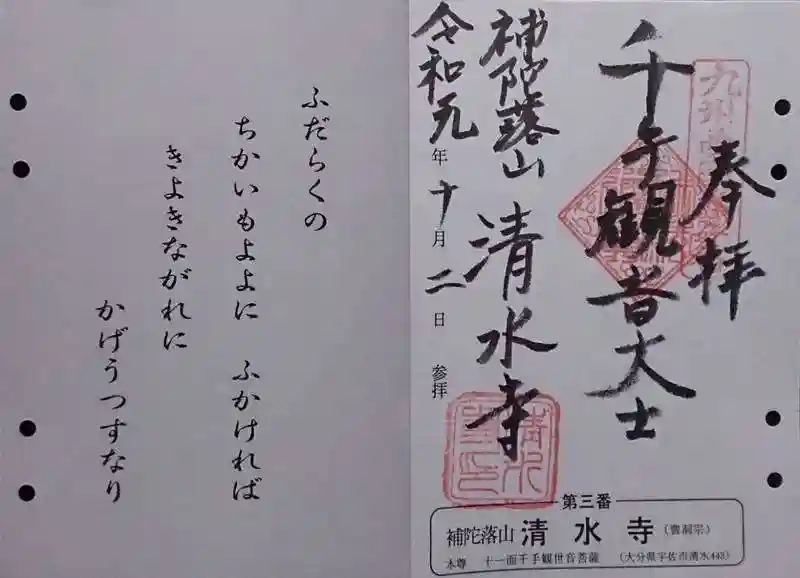 奉拝
千手観音大士
補陀落山 清水寺
令和元年十月二日 参拝
第三番
補陀落山 清水寺 (曹洞宗)
本尊 十一面千手観世音菩薩 (大分県宇佐市清水443)
ふだらくの
ちかいもよよに ふかければ
きよきながれに
かげうつすなり